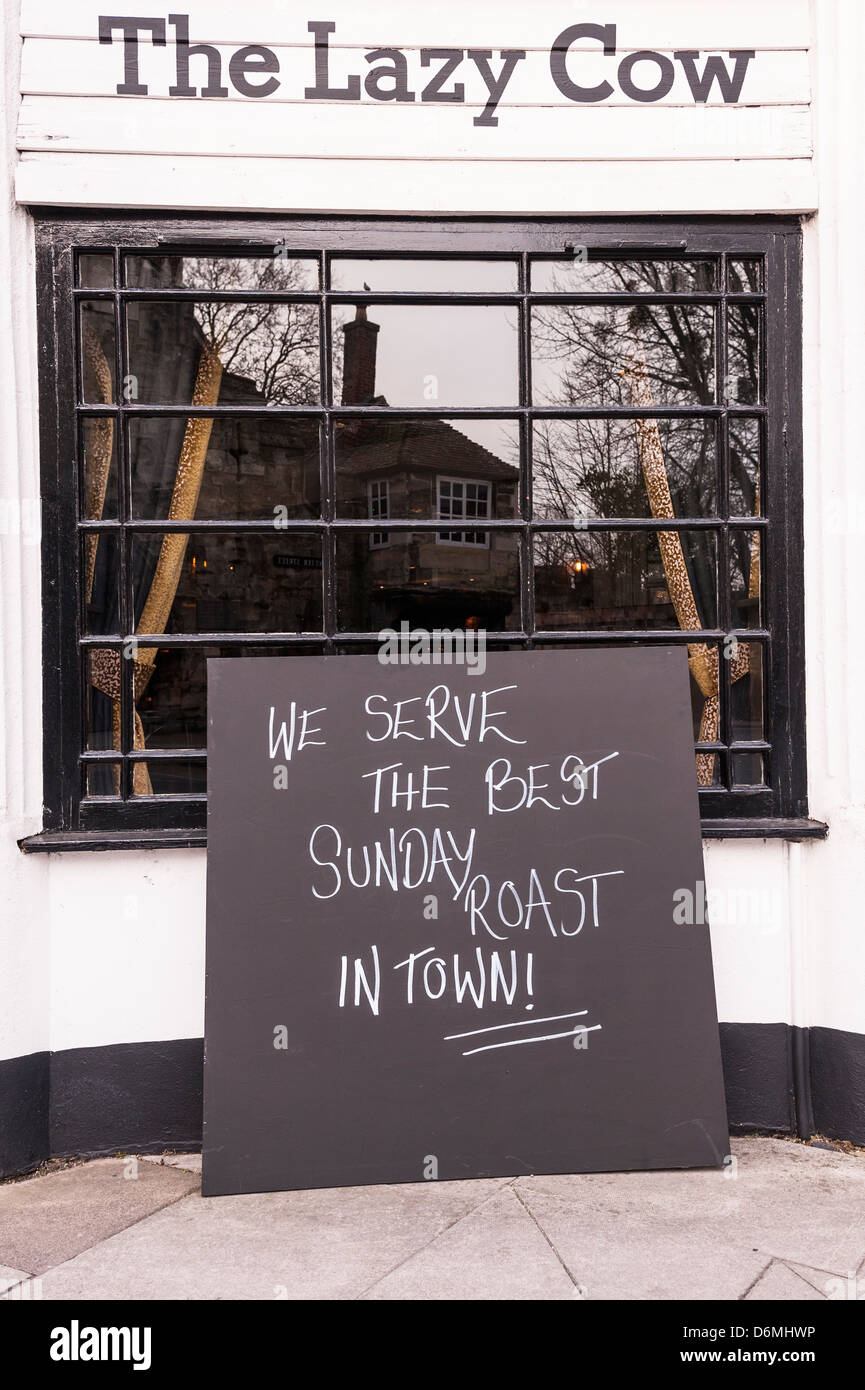 The Lazy Cow
WE SERVE
THE BEST
SUNDAY
ROAST
IN TOWN!
alamy
Image ID: D6MHWP
www.alamy.com